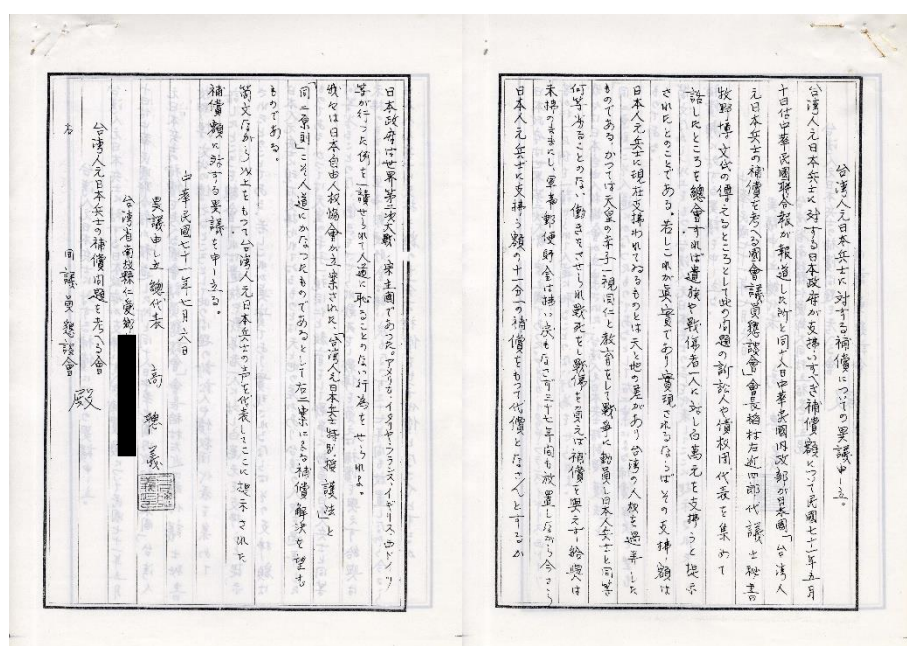 台湾人元日本兵士に対する補償についての異議申し立
台湾人元日本兵士に対する日本政府が支拂いすべき補償額について民國七十一年五月
十日付中華民國聯合報が報道した所と同十八日中華民國内政部が日本國「台湾人
元日本兵士の補償を考へる國會議員懇談會」會長稲村右近四郎代議士秘書
牧野博文代の傳えるところとして此の問題の訴訟人や債权团代表を集めて
話したところを總會すれば遺族や戦傷者一人に対し百萬元を支拂うと提示
されたとのことである。若しこれが眞実であり実現されるならばその支拂額は
日本人元兵士に現在支拂われてゐるものとは天と地の差があり台湾の人权を愚弄した
ものである、かつては天皇の赤子一視同仁と教育をして戦爭に動員し日本人兵士と同等
何等劣ることのない働きをさせられ戦死をし戦傷を負えば補償を與えず給與は
未拂のままにし、軍事郵便貯金は拂い戻もなさず三十七年间も放置しながら今さら
日本人元兵士に支拂う額の十一分一の補償をもって代償となさんとするか
日本政府は世界第二次大戦の宗主國であった。アメリカ、イタリヤ、フランス、イギリス、西ドイツ
等が行った例を一讀せられて人道に恥ることのない行為をせられよ。
我々は日本自由人权協會が立案された「台湾人元日本兵士特別援護法」と
「同一原則」こそ人道にかなったものであるとして右二案による補償解決を望む
ものである。
簡文ながら以上をもって台湾人元日本兵士の声を代表してここに提示された
補償額に対する異議を申し立る。
中華民國七十一年七月六日
異議申し立總代表 高聰義
台湾省南投縣仁愛鄉
台湾人元日本兵士の補償問題を考へる會
右 同議員懇談會
殿